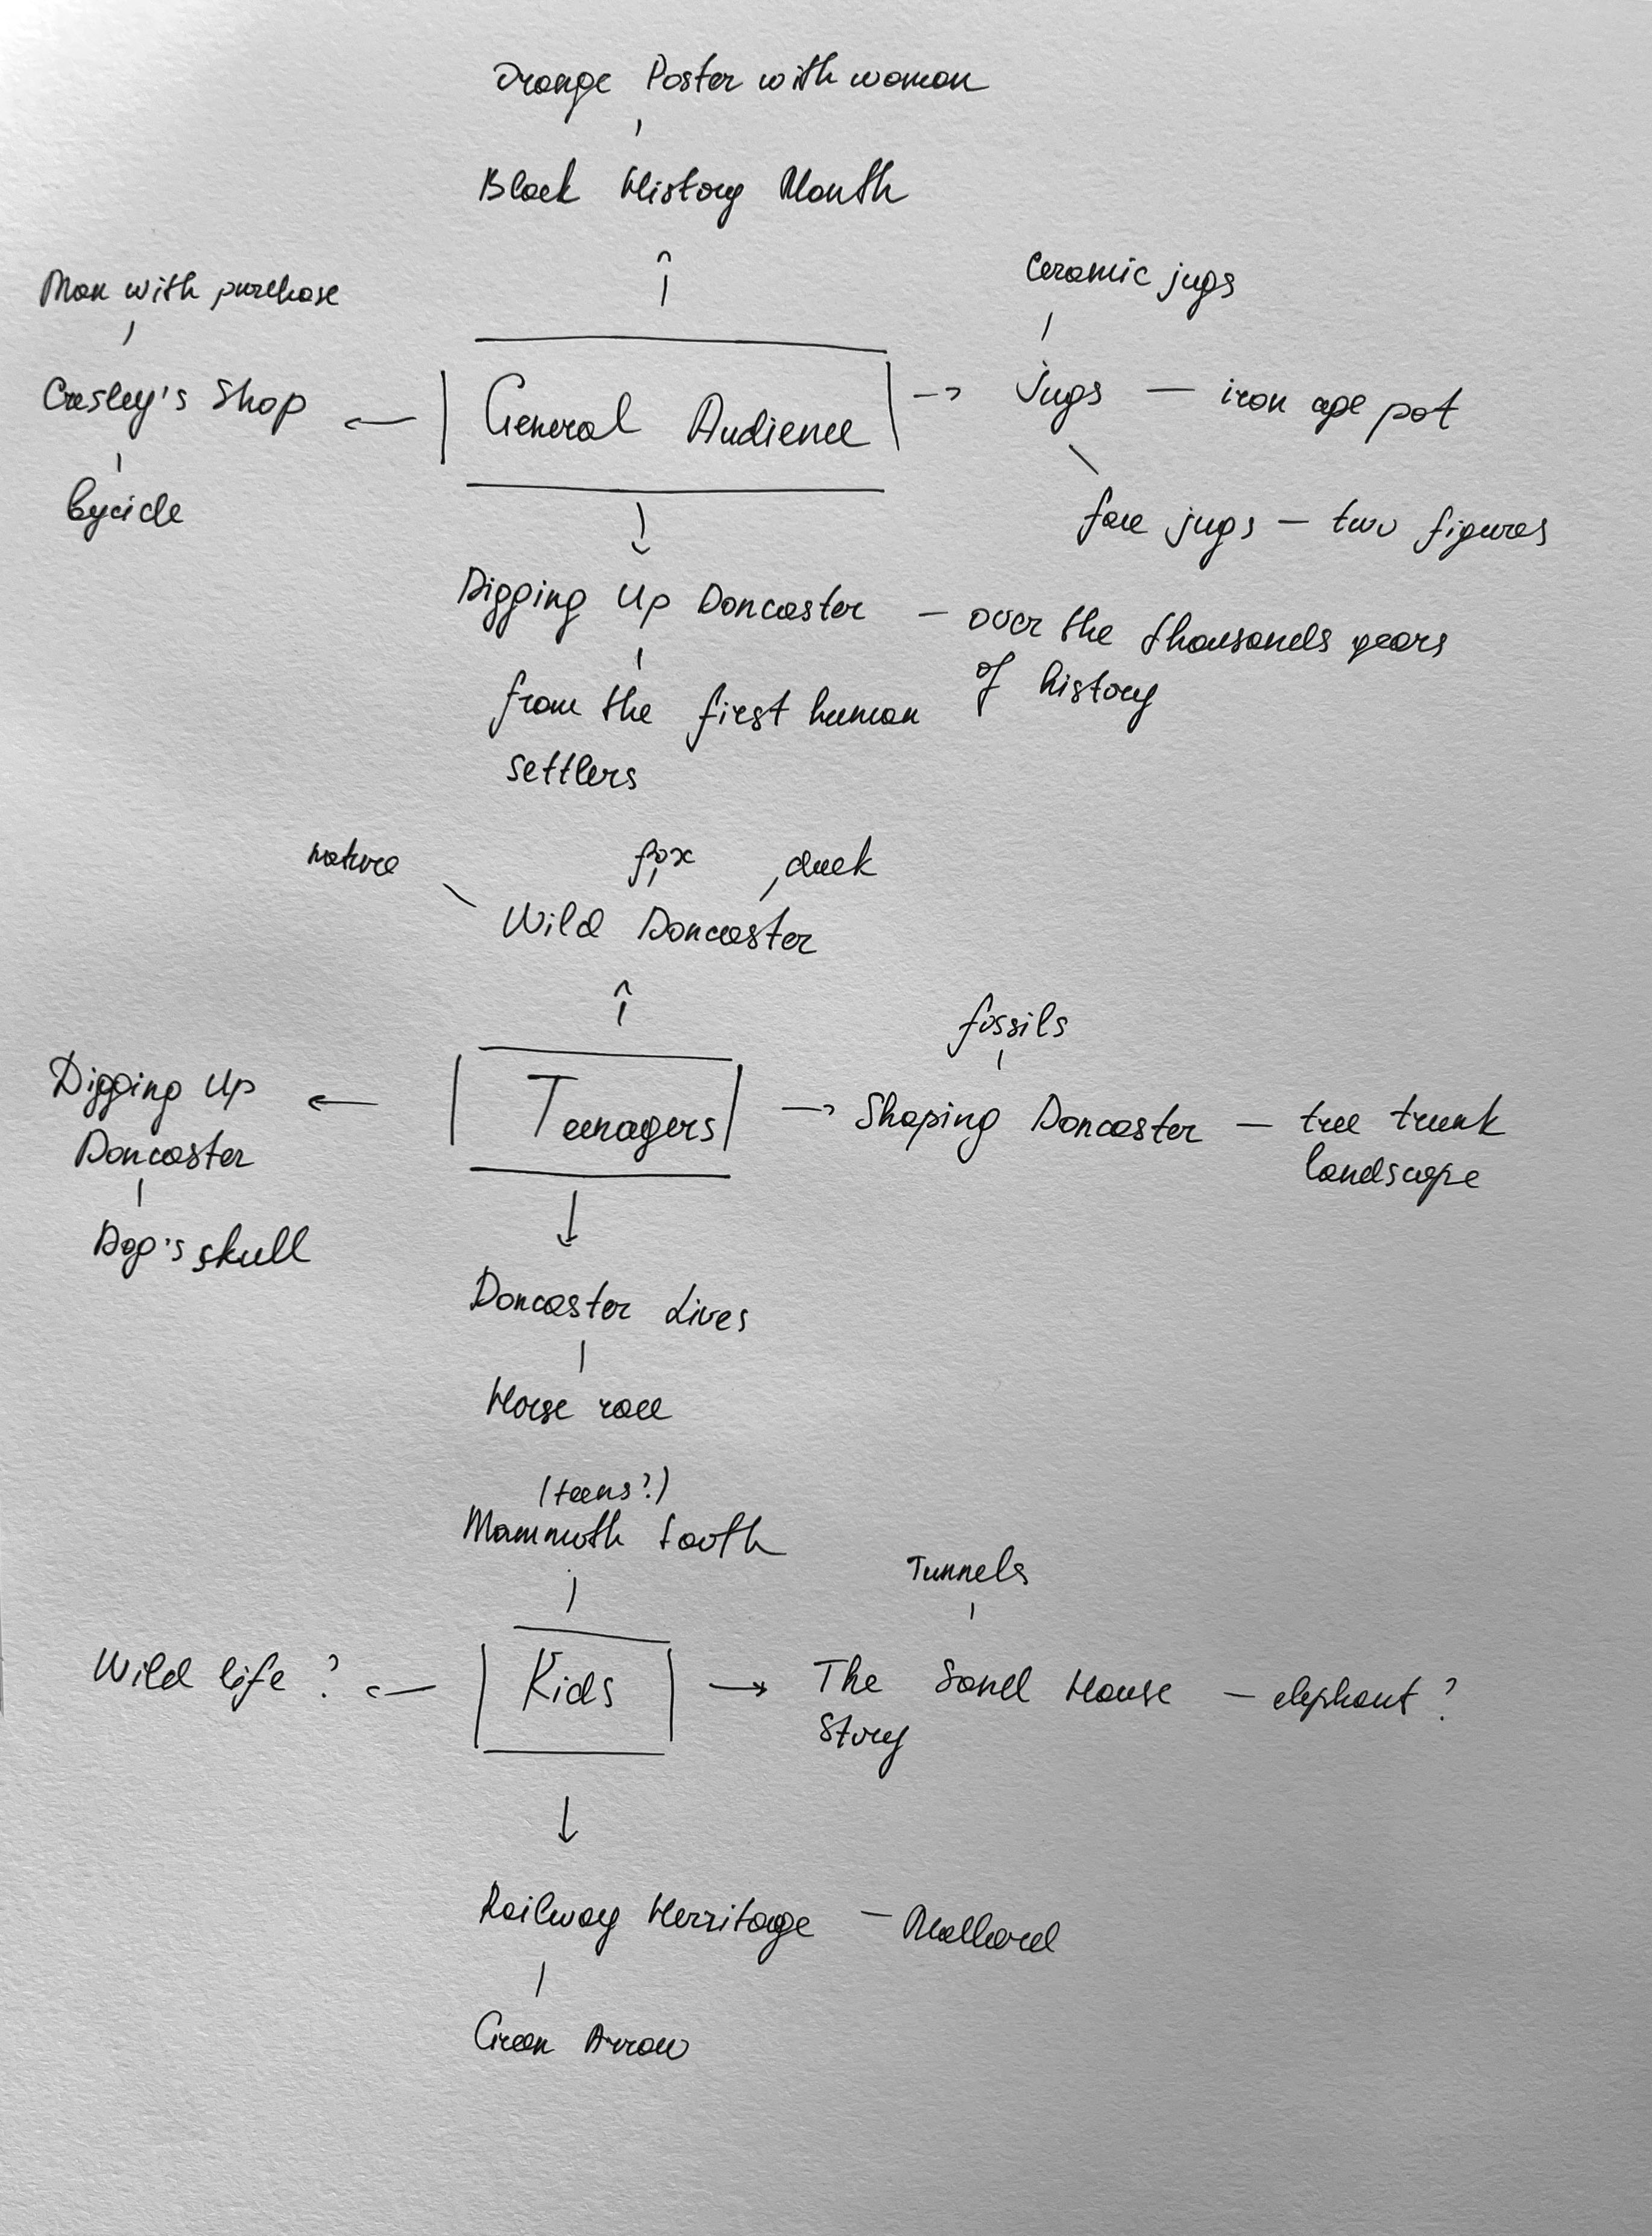 Orange Poster with woman
Black History Month
Ceramic jugs
Man with purchase
Jugs — iron age pot
Cresley's Shop
General Audience
bycicle
face jugs — two figures
Digging Up Doncaster — over the thousands years
of history
from the first human
settlers
nature
fox
duck
Wild Doncaster
fossils
Digging Up
Doncaster
Teenagers
Shaping Doncaster — tree trunk
landscape
Dog's skull
Doncaster Lives
Horse race
(teens?)
Mammoth tooth
Tunnels
Wild life ?
Kids
The Sand House — elephant ?
Story
Railway Herritage — Mallard
Green Arrow